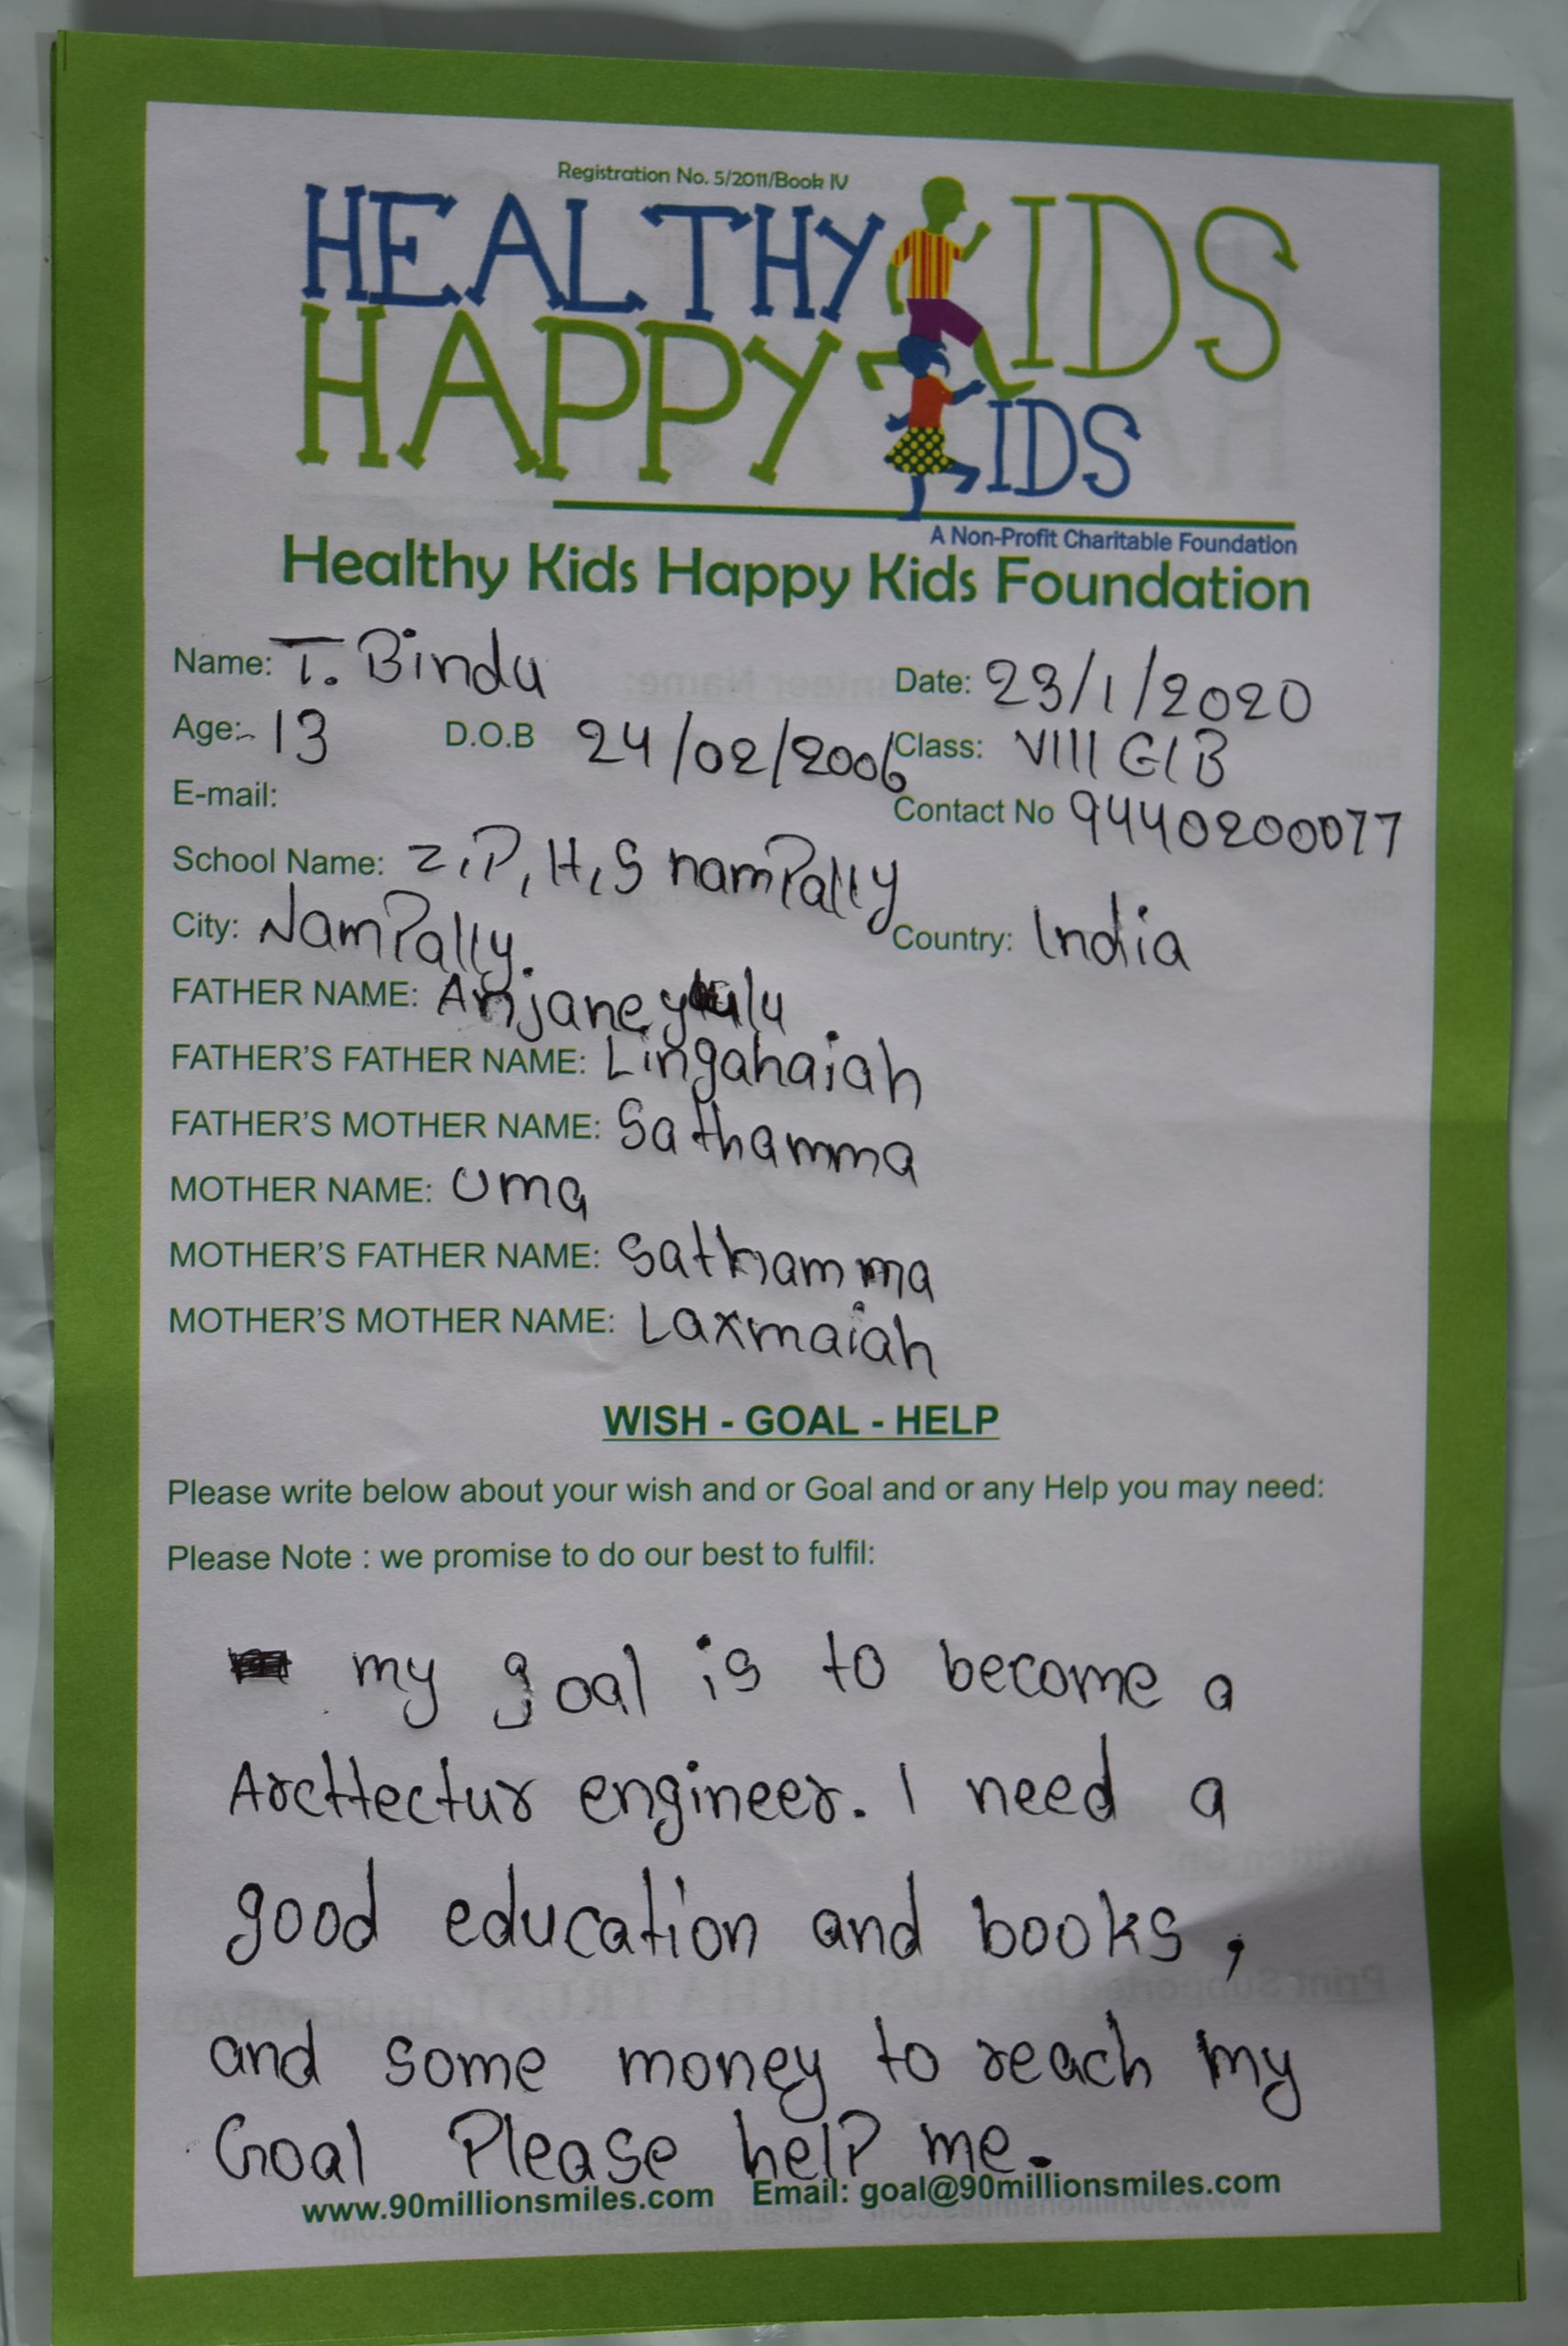 Registration No. 5/2011/Book IV
HEALTHY KIDS
HAPPY KIDS
A Non-Profit Charitable Foundation
Healthy Kids Happy Kids Foundation
Name: T. Bindu Date: 23/1/2020
Age:- 13 D.O.B 24/02/2006 Class: VIII G/B
E-mail: Contact No 9440200077
School Name: Z,P,H,S namPally
City: NamPally. Country: India
FATHER NAME: Anjaneyulu
FATHER'S FATHER NAME: Lingahaiah
FATHER'S MOTHER NAME: Sathamma
MOTHER NAME: Uma
MOTHER'S FATHER NAME: Sathamma
MOTHER'S MOTHER NAME: Laxmaiah
WISH - GOAL - HELP
Please write below about your wish and or Goal and or any Help you may need:
Please Note : we promise to do our best to fulfil:
my goal is to become a
Arcttectur engineer. I need a
good education and books,
and some money to reach my
Goal Please help me.
www.90millionsmiles.com Email: goal@90millionsmiles.com